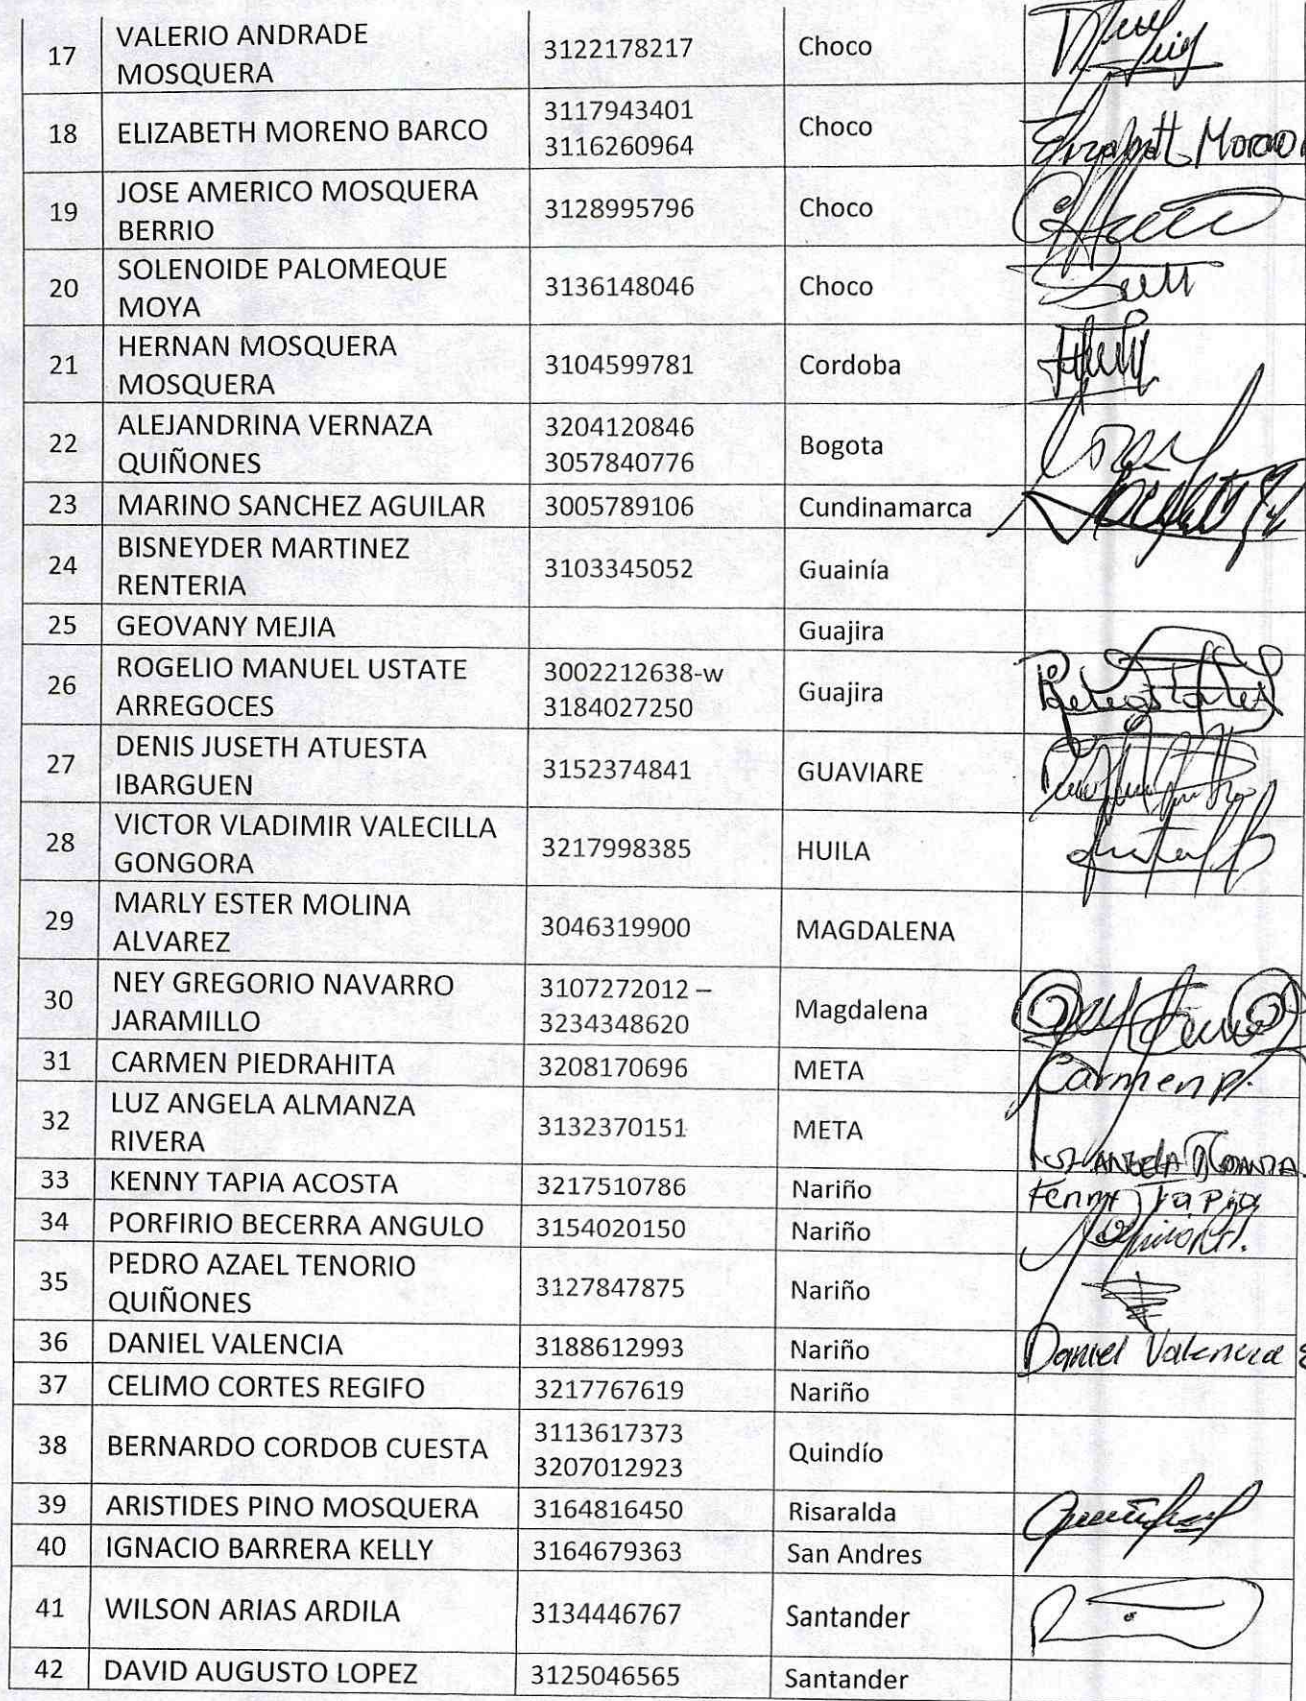 17 VALERIO ANDRADE MOSQUERA 3122178217 Choco
18 ELIZABETH MORENO BARCO 3117943401 3116260964 Choco Elizabett Moreno
19 JOSE AMERICO MOSQUERA BERRIO 3128995796 Choco
20 SOLENOIDE PALOMEQUE MOYA 3136148046 Choco
21 HERNAN MOSQUERA MOSQUERA 3104599781 Cordoba
22 ALEJANDRINA VERNAZA QUIÑONES 3204120846 3057840776 Bogota
23 MARINO SANCHEZ AGUILAR 3005789106 Cundinamarca
24 BISNEYDER MARTINEZ RENTERIA 3103345052 Guainía
25 GEOVANY MEJIA Guajira
26 ROGELIO MANUEL USTATE ARREGOCES 3002212638-w 3184027250 Guajira
27 DENIS JUSETH ATUESTA IBARGUEN 3152374841 GUAVIARE
28 VICTOR VLADIMIR VALECILLA GONGORA 3217998385 HUILA
29 MARLY ESTER MOLINA ALVAREZ 3046319900 MAGDALENA
30 NEY GREGORIO NAVARRO JARAMILLO 3107272012 – 3234348620 Magdalena
31 CARMEN PIEDRAHITA 3208170696 META Carmen p.
32 LUZ ANGELA ALMANZA RIVERA 3132370151 META LUZ ANGELA ALMANZA
33 KENNY TAPIA ACOSTA 3217510786 Nariño Kenny Tapia
34 PORFIRIO BECERRA ANGULO 3154020150 Nariño
35 PEDRO AZAEL TENORIO QUIÑONES 3127847875 Nariño
36 DANIEL VALENCIA 3188612993 Nariño Daniel Valencia
37 CELIMO CORTES REGIFO 3217767619 Nariño
38 BERNARDO CORDOB CUESTA 3113617373 3207012923 Quindío
39 ARISTIDES PINO MOSQUERA 3164816450 Risaralda
40 IGNACIO BARRERA KELLY 3164679363 San Andres
41 WILSON ARIAS ARDILA 3134446767 Santander
42 DAVID AUGUSTO LOPEZ 3125046565 Santander